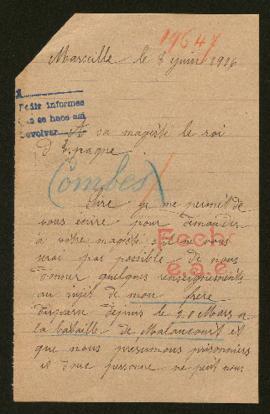 19647
Marseille le 8 juin 1916
Pedir informes
que se hace así
devolver
A sa majesté le roi
d'Espagne.
Combes
Sire je me permet de
vous écrire pour demander
à votre majesté s'il ne vous
serai pas possible de nous
donner quelques renseignements
au sujet de mon frère
disparu depuis le 20 Mars a
la bataille de Malancourt et
que nous présumons prisonniers
et donc personne ne peut nous
Fecho
e.a.e.